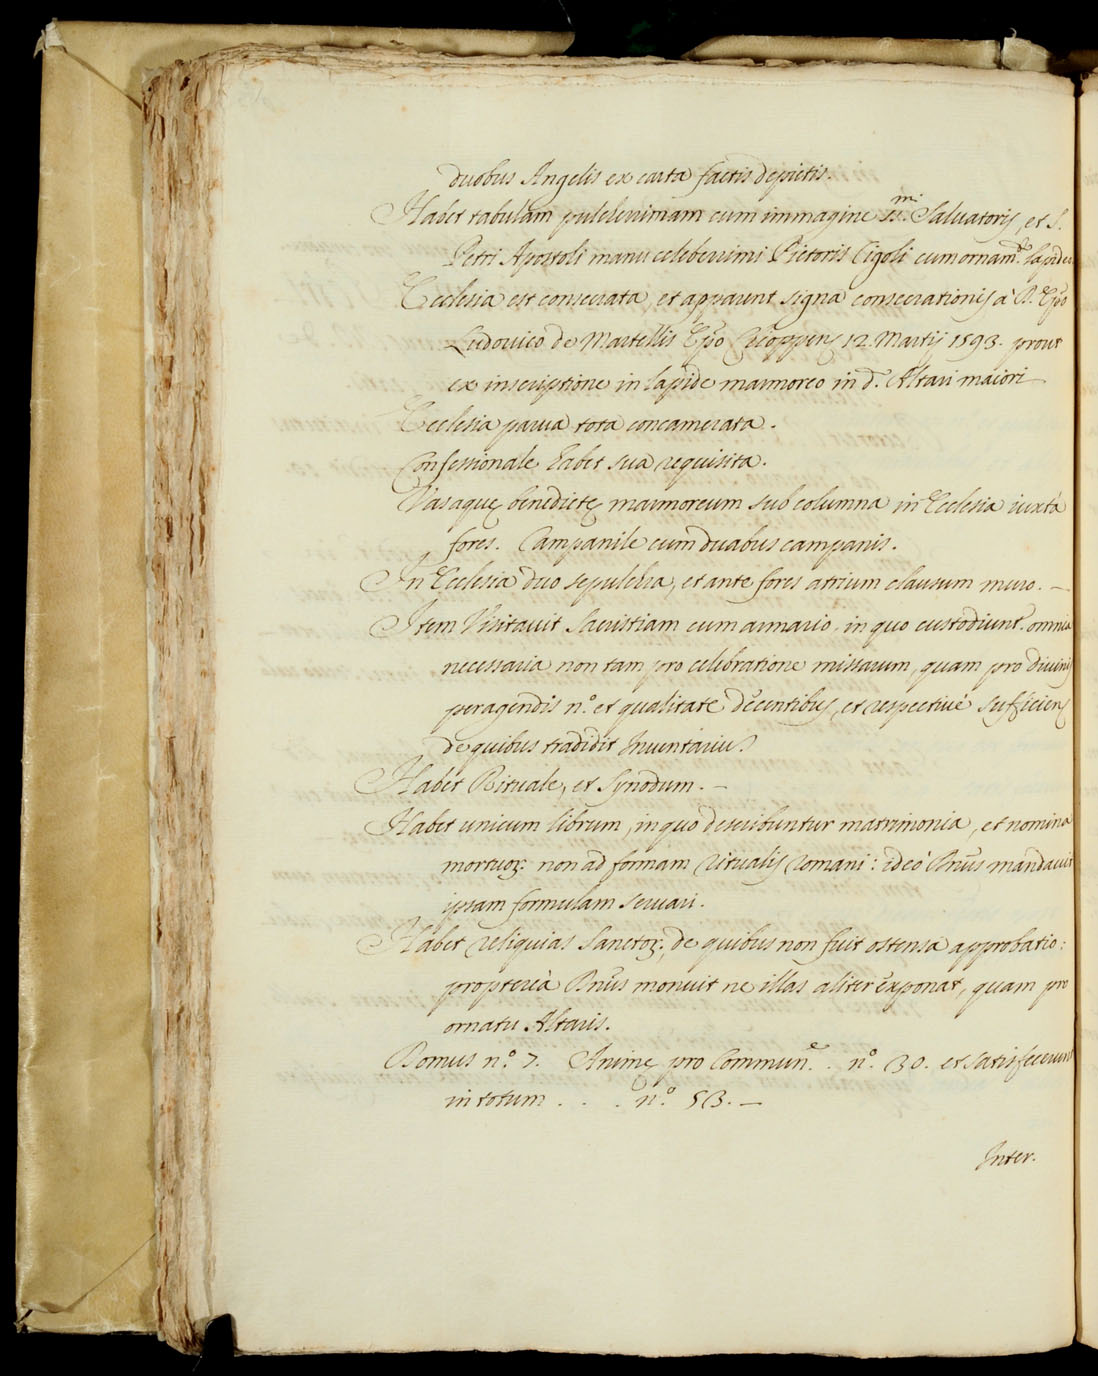 duobus Angelis ex carta factis depictis.
Habet tabulam pulcherrimam cum immagine SS.mi Salvatoris, et S.
Petri Apostoli manu celeberrimi Pictoris Cigoli cum ornam.º lapideo
Ecclesia est consecrata, et apparent signa consecrationis à R. Ep̃o
Ludovico de Martellis Ep̃o 12. Martij 1593. prout
ex inscriptione in lapide marmoreo in d.º Altari maiori
Ecclesia parva tota concamerata.
Confessionale habet sua requisita.
Vas aquę benedictę marmoreum sub columna in Ecclesia iuxtà
fores. Campanile cum duabus campanis.
In Ecclesia duo sepulchra, et ante fores atrium clausum muro. –
Item Visitavit Sacristiam cum armario in quo custodiunt.r omnia
necessaria non tam pro celebratione missarum, quam pro divinis
peragendis n.º et qualitate decentibus, et respectivè sufficiens
de quibus tradidit Inventariũ
Habet Rituale, et Synodum. –
Habet unicum librum, in quo describuntur matrimonia, et nomina
mortuoꝝ: non ad formam ritualis romani: ideò Dñus mandavit
ipsam formulam servari.
Habet reliquias Sanctoꝝ, de quibus non fuit ostensa approbatio:
proptereà Dñus monuit ne illas aliter exponat, quam pro
ornatu Altaris.
Domus n.º 7. Animę pro Commun.e . n.º 30. et satisfecerunt
in totum . . . n.º 53. –
Inter.